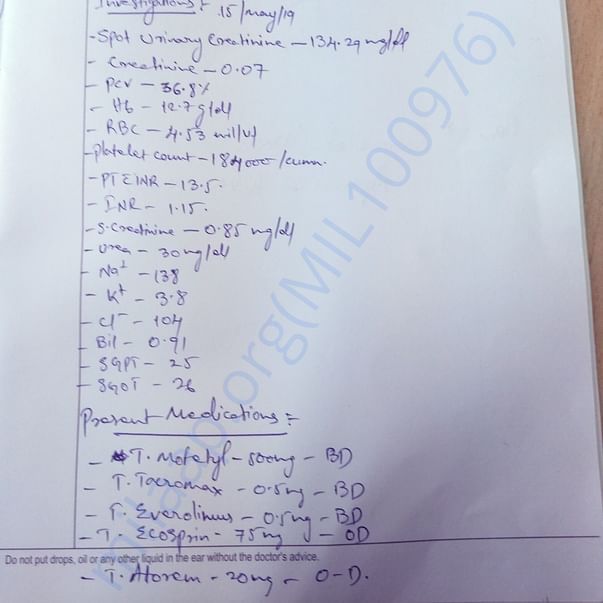 Investigations :- 15/May/19
- Spot Urinary Creatinine - 134.29 mg/dl
- Creatinine - 0.07
- PCV - 36.8%
- Hb - 12.7 g/dl
- RBC - 4.53 mill/ul
- Platelet count - 184000 /cumm.
- PT & INR - 13.5.
- INR - 1.15.
- S. Creatinine - 0.85 mg/dl
- Urea - 30 mg/dl
- Na+ - 138
- K+ - 3.8
- Cl- - 104
- Bil - 0.91
- SGPT - 25
- SGOT - 26
Present Medications :-
- T. Mofetyl - 500mg - BD
- T. Tacromax - 0.5mg - BD
- T. Everolimus - 0.5mg - BD
- T. Ecosprin - 75mg - OD
Do not put drops, oil or any other liquid in the ear without the doctor's advice.
- T. Atorem - 20mg - O-D.
milaap.org(MIL100976)